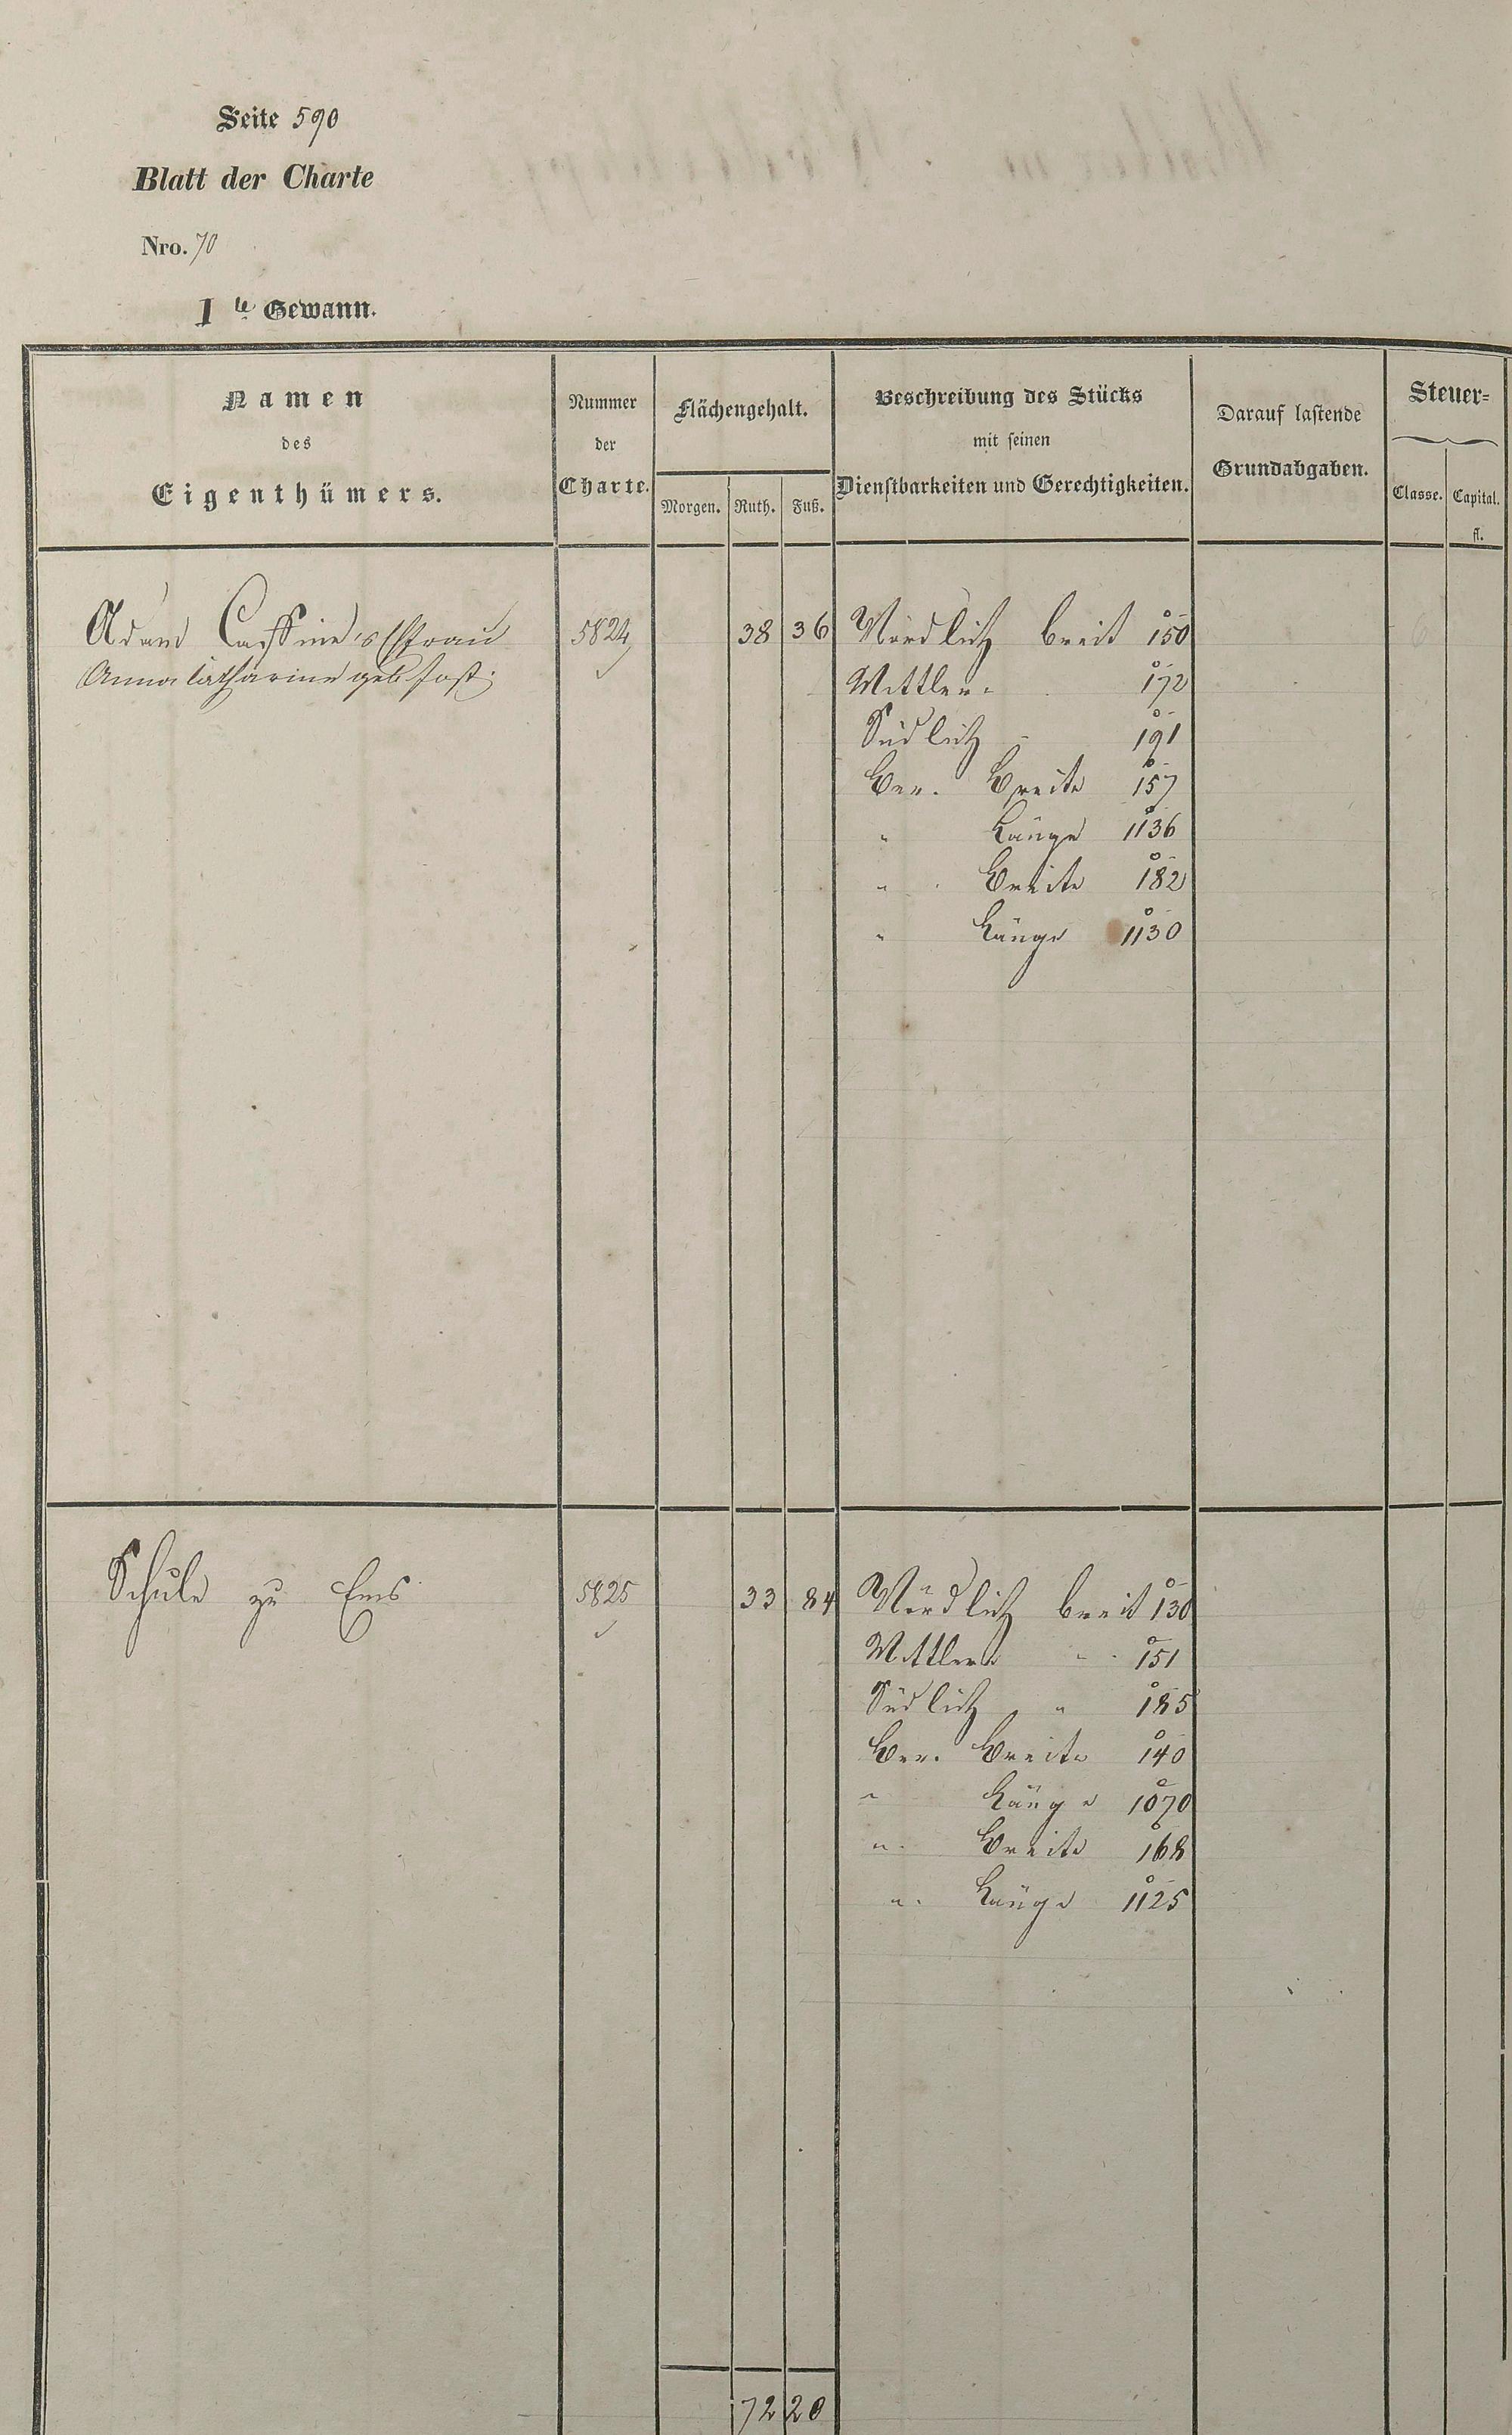 Seite 590
Blatt der Charte
Nro. 70
1te Gewann.
Namen
des
Eigenthümers.
Nummer
der
Charte.
Flächengehalt.
Morgen. Ruth. Fuß.
Beschreibung des Stücks
mit seinen
Dienstbarkeiten und Gerechtigkeiten.
Darauf lastende
Grundabgaben.
Steuer=
Classe. Capital.
fl.
Adam 's Efrau 5824 38 36 Nördlich breit 150
Anna Catharine geb. Jost. Mittlere 172
Südlich " 191
Ber. Breite 157
" Länge 1136
" Breite 182
" Länge 1130
Schule zu Ems 5825 33 84 Nördlich breit 130
Mittlere " 151
Südlich " 185
Ber. Breite 140
" Länge 1070
" Breite 168
" Länge 1125
72 20